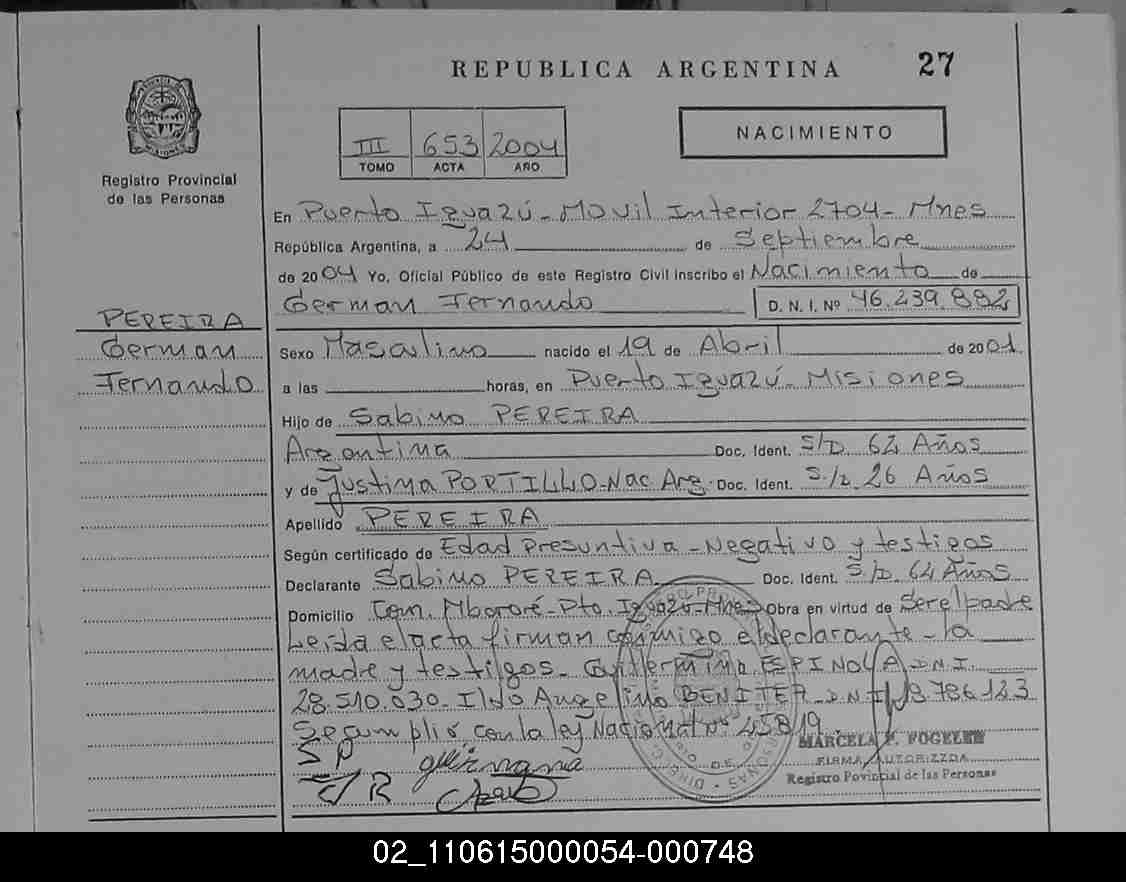 REPUBLICA ARGENTINA 27
III 653 2004
TOMO ACTA AÑO
NACIMIENTO
Registro Provincial
de las Personas
En Puerto Iguazú - Movil Interior 2704 - Mnes
República Argentina, a 24 de Septiembre
de 2004 Yo, Oficial Público de este Registro Civil inscribo el Nacimiento de
German Fernando D. N. I. Nº 46.239.882
PEREIRA
German
Fernando
Sexo Masculino nacido el 19 de Abril de 2001
a las horas, en Puerto Iguazú - Misiones
Hijo de Sabino PEREIRA
Argentina Doc. Ident. S/D. 64 Años
y de Justina PORTILLO - Nac Arg. Doc. Ident. S/D. 26 Años
Apellido PEREIRA
Según certificado de Edad Presuntiva - Negativo y testigos
Declarante Sabino PEREIRA Doc. Ident. S/D. 64 Años
Domicilio Com. Mbororé - Pto. Iguazú - Mnes Obra en virtud de Ser el padre
Leida el acta firman conmigo el declarante - la
madre y testigos - Guillermina ESPINOLA D.N.I.
28.510.030 - Ildo Angelino BENITEZ - DNI 18.786.123
Se cumplió con la ley Nacional Nº 25819.
MARCELA F. FOGELER
FIRMA AUTORIZZDA
Registro Povincial de las Personas
SP
JR
02_110615000054-000748